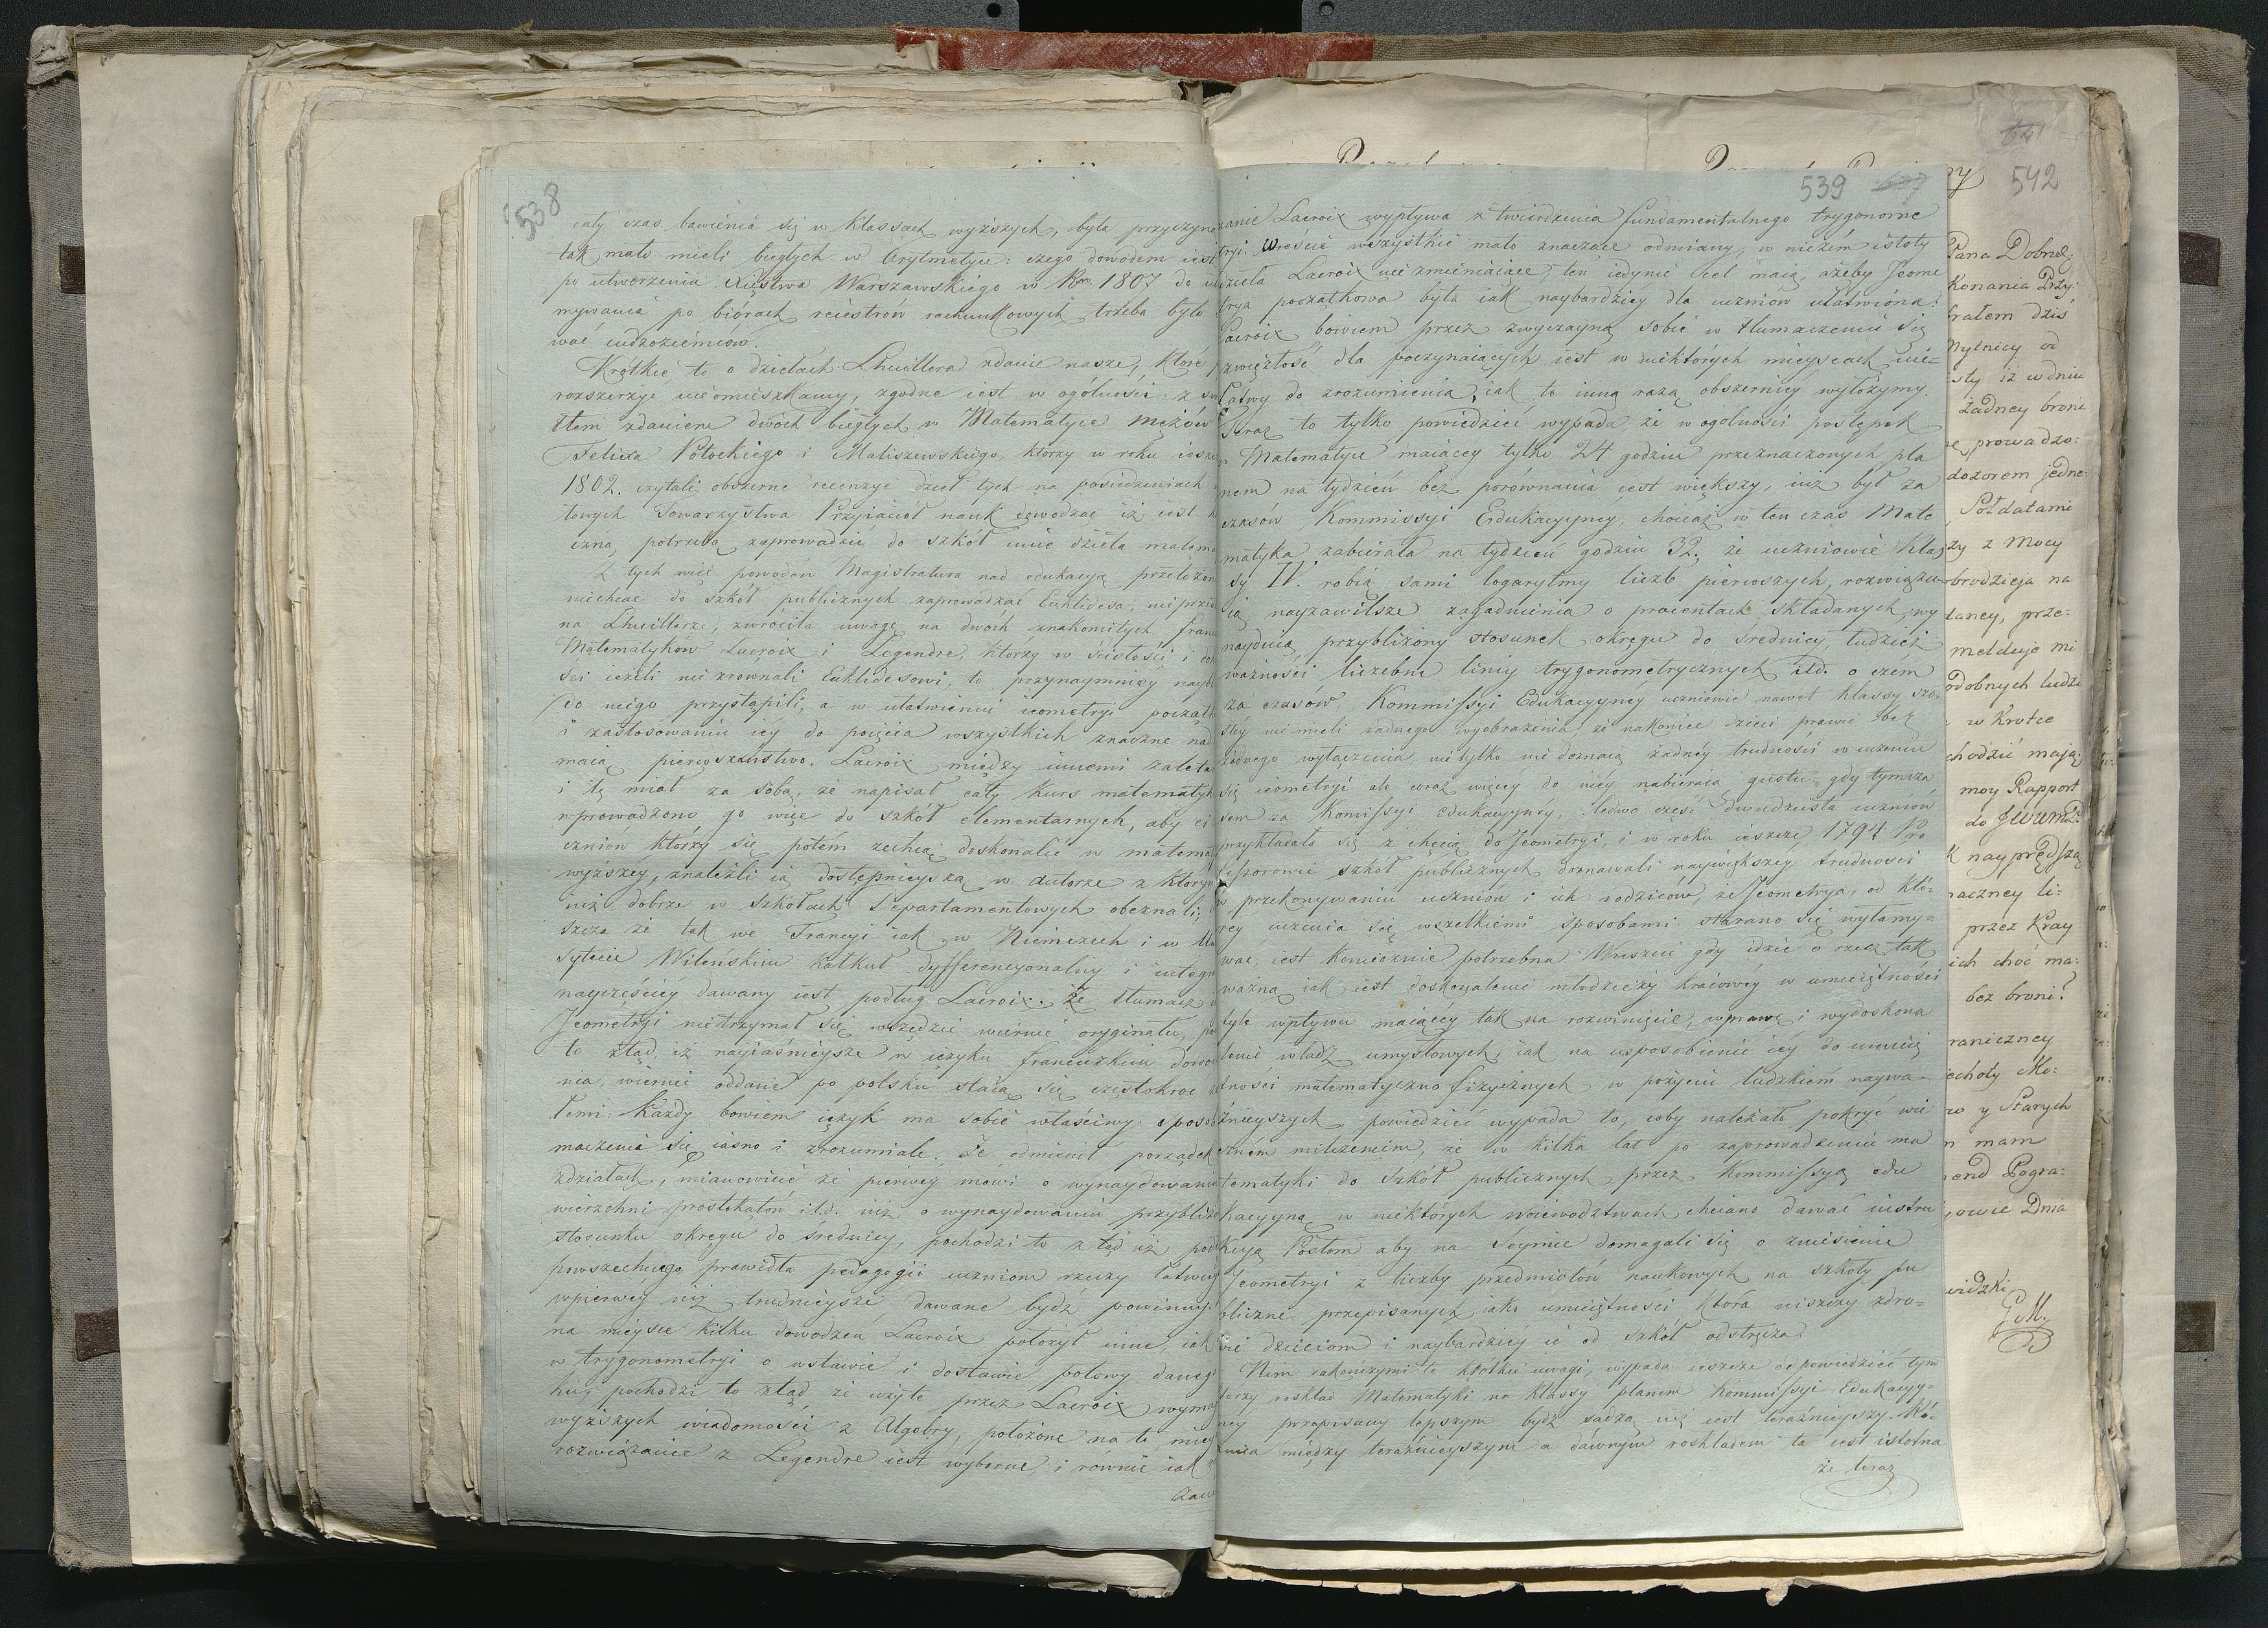 538
cały czas bawienia się w klassach wyższych, była przyczyną
tak mało mieli biegłych w Arytmetyce: czego dowodem iest
po utworzeniu Xięstwa Warszawskiego w Rou 1807 do u
mywania po biórach reiestrów rachunkowych trzeba było
wać cudzoziemców.
Krótkie to o dziełach Lhuillera zdanie nasze, które
rozszerzyć nieomieszkamy, zgodne iest w ogólności z
tłem zdaniem dwóch biegłych w Matematyce mężów
Felixa Potockiego i Maliszewskiego, ktorzy w roku ieszc
1802. czytali obszerne recenzye dzieł tych na posiedzeniach
towych Towarzystwa Przyiacioł nauk dowodząc iż iest
czną potrzebą zaprowadzić do szkół inne dzieła matema
Z tych więc powodów Magistratura nad edukacyą przełożon
niechcąc do szkół publicznych zaprowadzać Euklidesa, nieprze
na Lhuillerze, zwróciła uwagę na dwóch znakomitych fran
Matematyków Lacroix i Legendre, którzy w scisłości i do
ści ieżeli nie zrownali Euklidesowi, to przynaymniey nayb
do niego przystąpili, a w ułatwieniu ieometryi począt
i zastosowaniu iéy do poięcia wszystkich znaczne nad
maią pierwszeństwo. Lacroix między innemi zaleta
i tę miał za sobą, że napisał cały kurs matematyk
wprowadzono go więc do szkół elementarnych, aby ci
czniów którzy się potém zechcą doskonalić w matema
wyższey, znaleźli ią dostępnieyszą w autorze z ktorym
iuż dobrze w szkołach Departamentowych obeznali,
szcza że tak we Francyi iak w Niemczech i w Un
sytecie Wilenskim kalkuł dyfferencyonalny i integr
nayczęściey dawany iest podług Lacroix. Że tłumacz
Jeometryi nietrzymał się wszędzie wiernie oryginału, po
to ztąd, iż nayiaśnieysze w ięzyku francuzkim dowo
nia, wiernie oddane po polsku staią się częstokroć
łemi. Każdy bowiem ięzyk ma sobie właściwy sposob
maczenia się iasno i zrozumiale. Że odmienił porządek
zdziałach, mianowicie że pierwey mówi o wynaydowaniu
wierzchni prostokątów itd. niż o wynaydowaniu przybliżo
stosunku okręgu do średnicy, pochodzi to ztąd iż podł
powszechnego prawidła pedagogii uczniom rzeczy łatwiey
wpierwey niż trudnieysze dawane bydź powinny;
na mieysce kilku dowodzeń Lacroix położył inne, iak
w trygonometryi o wstawie i dostawie połowy daneg
ku, pochodzi to ztąd że użyte przez Lacroix wyma
wyższych wiadomości z Algebry, położone na to miey
rozwiązanie z Legendre iest wyborne i równie iak
539
zanie Lacroix wypływa z twierdzenia fundamentalnego trygonome
tryi. Wreście wszystkie mało znaczące odmiany, w niczém istoty
dzieła Lacroix nie zmieniaiące, ten iedynie cel maią, ażeby Jeome
trya początkowa była iak naybardziéy dla uczniów ułatwiona:
Lacroix bowiem przez zwyczayną sobie w tłumaczeniu się
zwięzłość dla poczynaiących iest w niektórych mieyscach nie=
łatwy do zrozumienia, iak to inną razą obszerniey wyłożymy.
Teraz to tylko powiedzieć wypada, że w ogólności postępek
w Matematyce maiącey tylko 24 godzin przeznaczonych pla
nem na tydzień bez porównania iest większy, niż był za
czasów Kommissyi Edukacyyney, chociaż w ten czas Mate
matyka zabierała na tydzień godzin 32; że uczniowie klas
sy IV. robią sami logarytmy liczb pierwszych, rozwiązu
ią nayzawilsze zagadnienia o procentach składanych, wy
nayduią przybliżony stosunek okręgu do średnicy, tudzież
ważności liczebne liniy trygonometrycznych itd. o czem
za czasów Kommissyi Edukacyyney uczniowie nawet klassy szo=
stéy nie mieli żadnego wyobrażenia; że nakoniec dzieci prawie bez
żadnego wyłączenia nie tylko nie doznaią żadnéy trudności w uczeniu
się ieometryi ale coraz więcéy do niéy nabieraią gustu: gdy tymcza
sem za Komissyi Edukacyynéy, ledwo część dwudziesta uczniów
przykładała się z chęcią do Jeometryi, i w roku ieszcze 1794 Pro
fessorowie szkół publicznych doznawali naywiększey trudności
w przekonywaniu uczniów i ich rodziców, że Jeometrya, od któ=
rey uczenia się wszelkiemi sposobami starano się wyłamy=
wać, iest koniecznie potrzebna. Wreszcie gdy idzie o rzecz tak
ważną iak iest doskonalenie młodzieży kraiowéy w umieiętności
tyle wpływu maiącéy tak na rozwinięcie, wprawę i wydoskona
lenie władz umysłowych, iak na usposobienie iey do umieię
tności matematyczno fizycznych w pożyciu ludzkiém naywa=
żnieyszych, powiedzieć wypada to, coby należało pokryć wie
czném milczeniem, że w kilka lat po zaprowadzeniu ma
tematyki do Szkół publicznych przez Kommissyą edu
kacyyną w niektórych woiewództwach chciano dawać instru
kcyą Posłom aby na Seymie domagali się o zniesienie
Jeometryi z liczby przedmiotów naukowych na szkoły pu
bliczne przepisanych, iako umieiętności która niszczy zdro=
wie dzieciom i naybardziéy ie od szkół odstręcza.
Nim zakończymy te krótkie uwagi, wypada ieszcze odpowiedzieć tym
którzy rozkład Matematyki na klassy planem Kommissyi Edukacyy=
ney przepisany lepszym bydź sądzą niż iest teraźnieyszy. Ró=
żnica między teraźnieyszym a dawnym rozkładem ta iest istotna
że teraz
542
Pana Dobrod:
konania Przy:
brałem dziś
Mytnicy od
isty iż w dniu
żadney broni
prowadzo:
dozorem jedne:
Pół datami
z Mocy
brodzieja na
taney, prze:
melduje mi
odobnych ludzi
w Krotce
chodzić mają;
moy Rapport
do JWumć
k nayprędszą
naczney li=
przez Kray
ich choć ma:
bez broni?
raniczney
echoty Mo:
y Starych
mam
end Pogra:
owie Dnia
widzki
G.M.